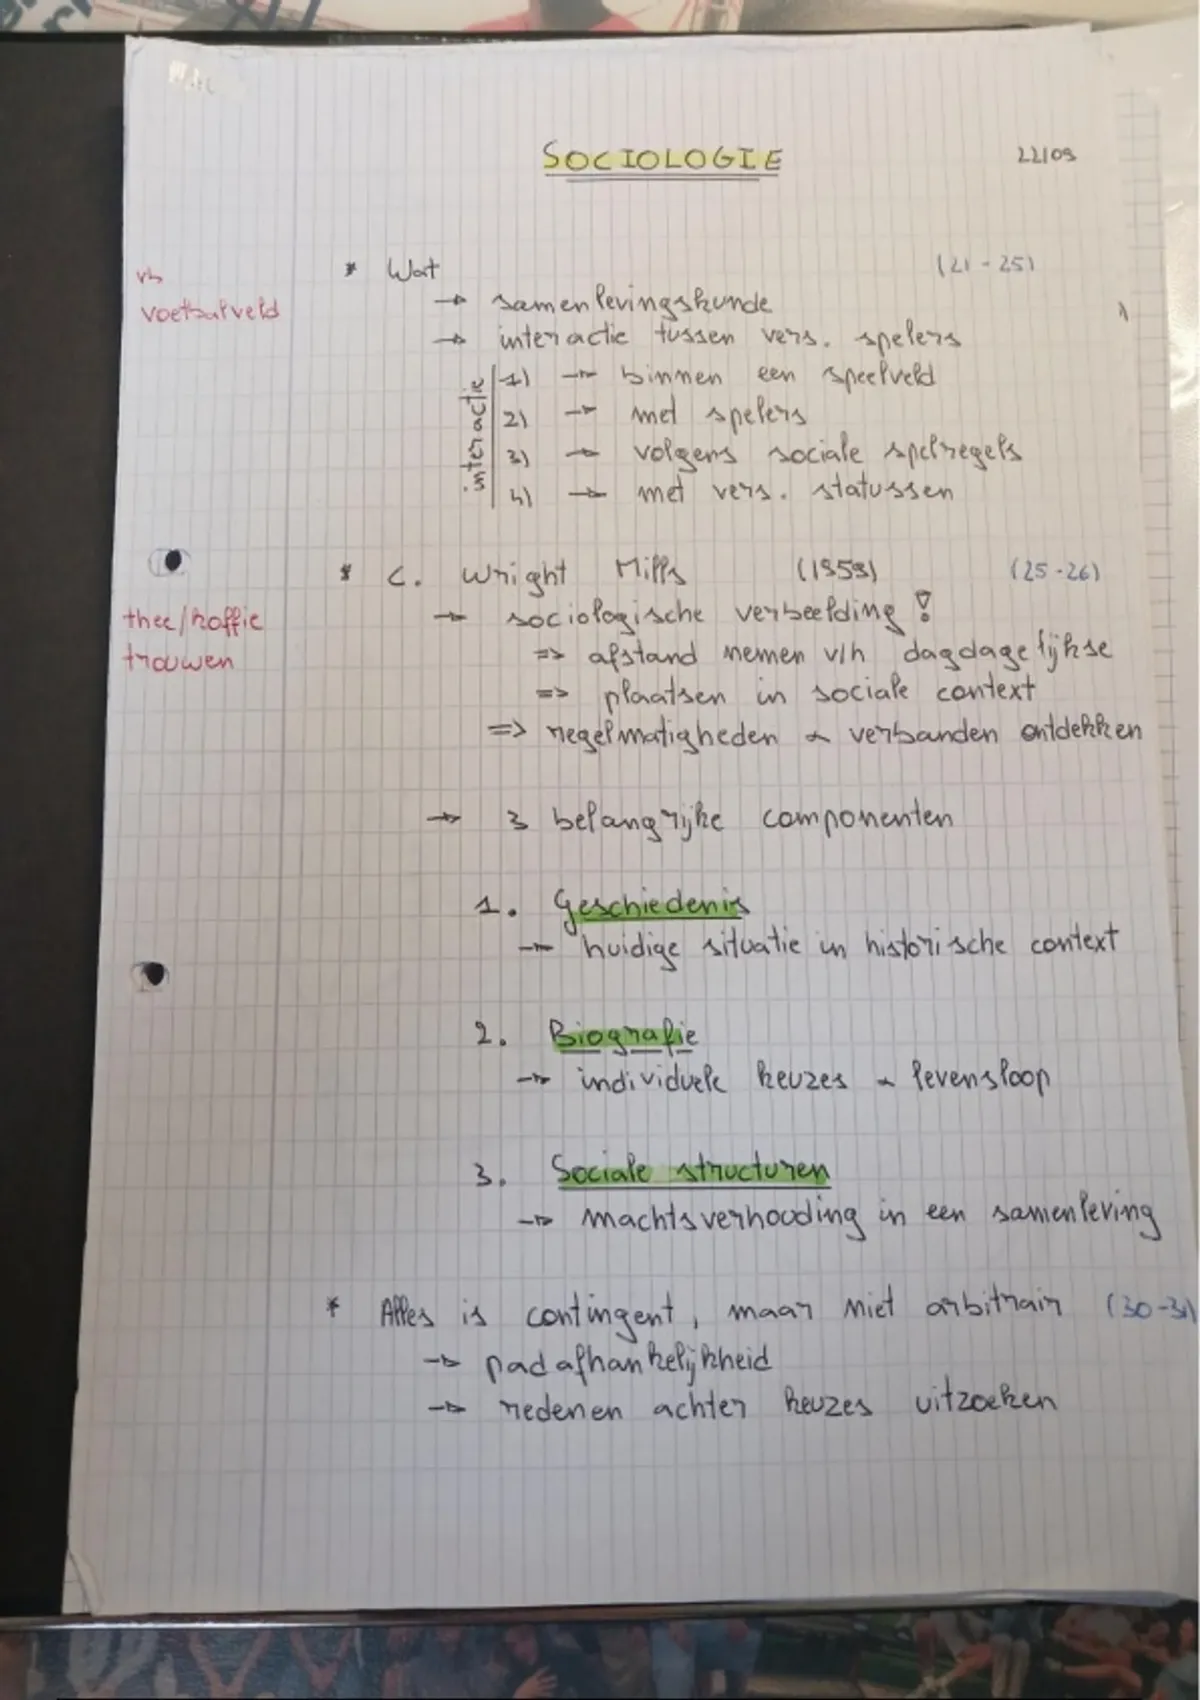 SOCIOLOGIE 22/09
vb
voetbalveld
* Wat (21-25)
→ samenlevingskunde
→ interactie tussen vers. spelers
interactie
1) → binnen een speelveld
2) → met spelers
3) → volgens sociale spelregels
4) → met vers. statussen
* C. Wright Mills (1959) (25-26)
thee/koffie
trouwen
→ sociologische verbeelding !
=> afstand nemen v/h dagdagelijkse
=> plaatsen in sociale context
=> regelmatigheden & verbanden ontdekken
→ 3 belangrijke componenten
1. Geschiedenis
→ huidige situatie in historische context
2. Biografie
→ individuele keuzes & levensloop
3. Sociale structuren
→ machtsverhouding in een samenleving
* Alles is contingent, maar niet arbitrair (30-31)
→ padafhankelijkheid
→ redenen achter keuzes uitzoeken